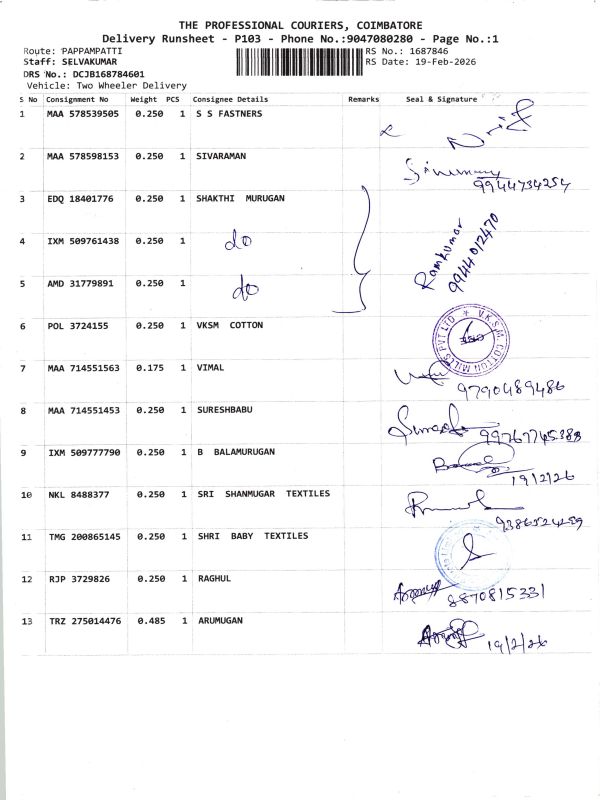 THE PROFESSIONAL COURIERS, COIMBATORE
Delivery Runsheet - P103 - Phone No.:9047080280 - Page No.:1
Route: PAPPAMPATTI RS No.: 1687846
Staff: SELVAKUMAR RS Date: 19-Feb-2026
DRS No.: DCJB168784601
Vehicle: Two Wheeler Delivery
S No Consignment No Weight PCS Consignee Details Remarks Seal & Signature
1 MAA 578539505 0.250 1 S S FASTNERS
2 MAA 578598153 0.250 1 SIVARAMAN
9944734254
3 EDQ 18401776 0.250 1 SHAKTHI MURUGAN
4 IXM 509761438 0.250 1 do
Ramkumar
9944012470
5 AMD 31779891 0.250 1 do
6 POL 3724155 0.250 1 VKSM COTTON
V.K.S.M. COTTON MILLS PVT LTD
7 MAA 714551563 0.175 1 VIMAL
9790489486
8 MAA 714551453 0.250 1 SURESHBABU
9 IXM 509777790 0.250 1 B BALAMURUGAN
19/2/26
10 NKL 8488377 0.250 1 SRI SHANMUGAR TEXTILES
11 TMG 200865145 0.250 1 SHRI BABY TEXTILES
12 RJP 3729826 0.250 1 RAGHUL
8870815331
13 TRZ 275014476 0.485 1 ARUMUGAN
19/2/26